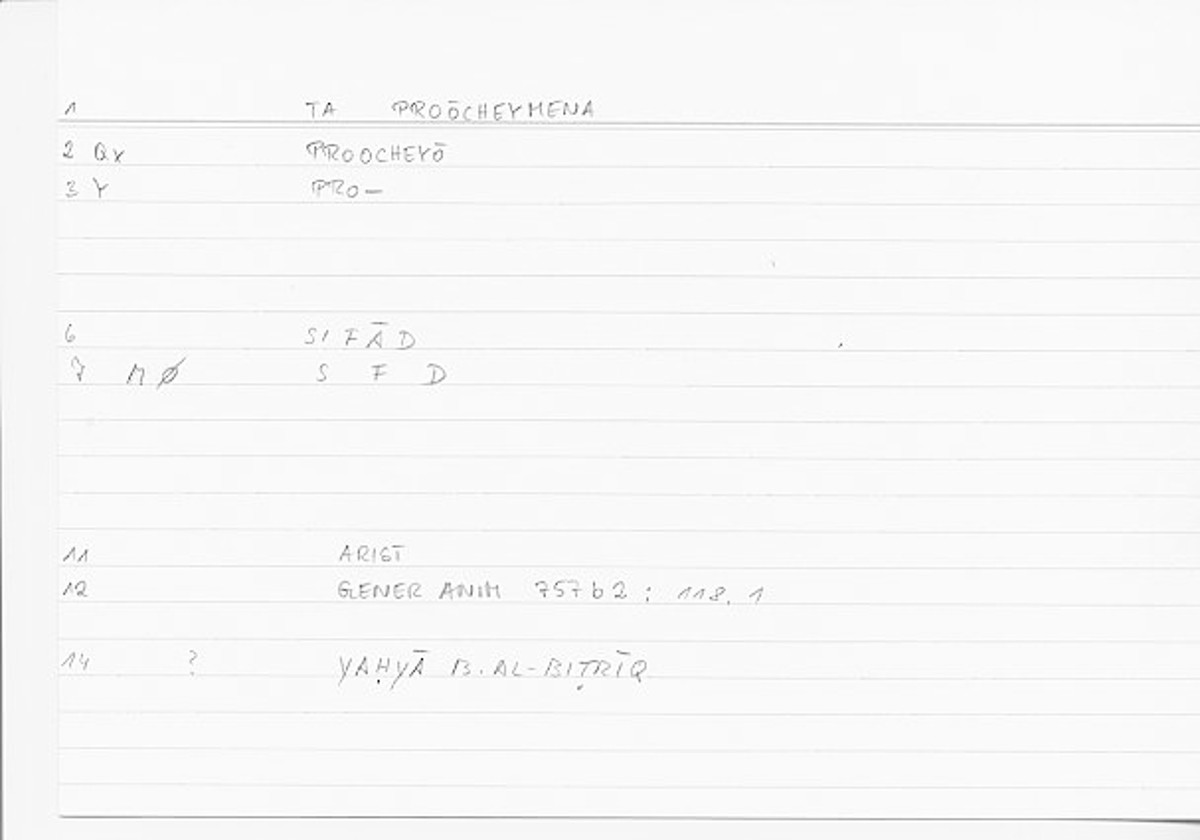 1 TA PROŌCHEYMENA
2 Qx PROOCHEYŌ
3 Y PRO-
6 SIFĀD
7 MØ S F D
11 ARIST
12 GENER ANIM 757b2 : 118.1
14 ? YAḤYĀ B. AL-BIṬRĪQ